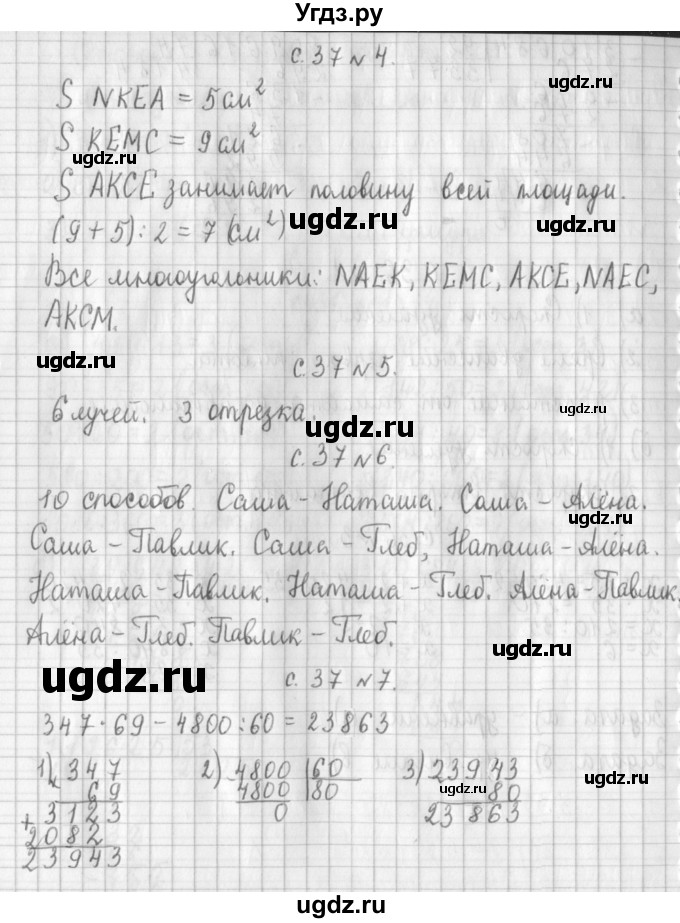 Угдз.ру
с. 37 № 4.
S NKEA = 5 см²
S KEMC = 9 см²
S AKCE занимает половину всей площади.
(9 + 5) : 2 = 7 (см²)
Все многоугольники: NAEK, KEMC, AKCE, NAEC,
AKCM.
с. 37 № 5.
6 лучей. 3 отрезка.
с. 37 № 6.
10 способов. Саша - Наташа. Саша - Алёна.
Саша - Павлик. Саша - Глеб, Наташа - Алёна.
Наташа - Павлик. Наташа - Глеб. Алёна - Павлик.
Алёна - Глеб. Павлик - Глеб.
с. 37 № 7.
347 · 69 - 4800 : 60 = 23863
1) × 347 2) 4800 | 60 3) 23943
69 4800 | 80 80
+ 3123 0 23863
2082
23943
ugdz.ru
ugdz.ru
ugdz.ru
ugdz.ru
ugdz.ru
ugdz.ru
ugdz.ru
ugdz.ru
ugdz.ru
ugdz.ru
ugdz.ru
ugdz.ru
ugdz.ru
ugdz.ru